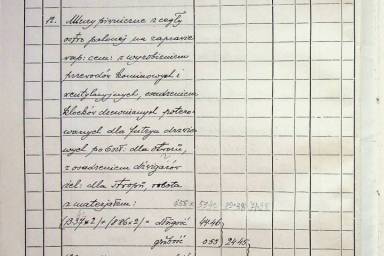 12. Mury piwniczne z cegły
ostro palonej na zaprawie
wap: cem: z wyrobieniem
przewodów kominowych i
wentylacyjnych, osadzeniem
klocków drewnianych
wanych dla futryn drzwio-
wych po 6 szt. dla otworu,
z osadzeniem dźwigarów
żel: dla stropu, robota
z materjałem:
(13.37×2)+(8.86×2)= długość 44.46
grubość 0.55 24.45